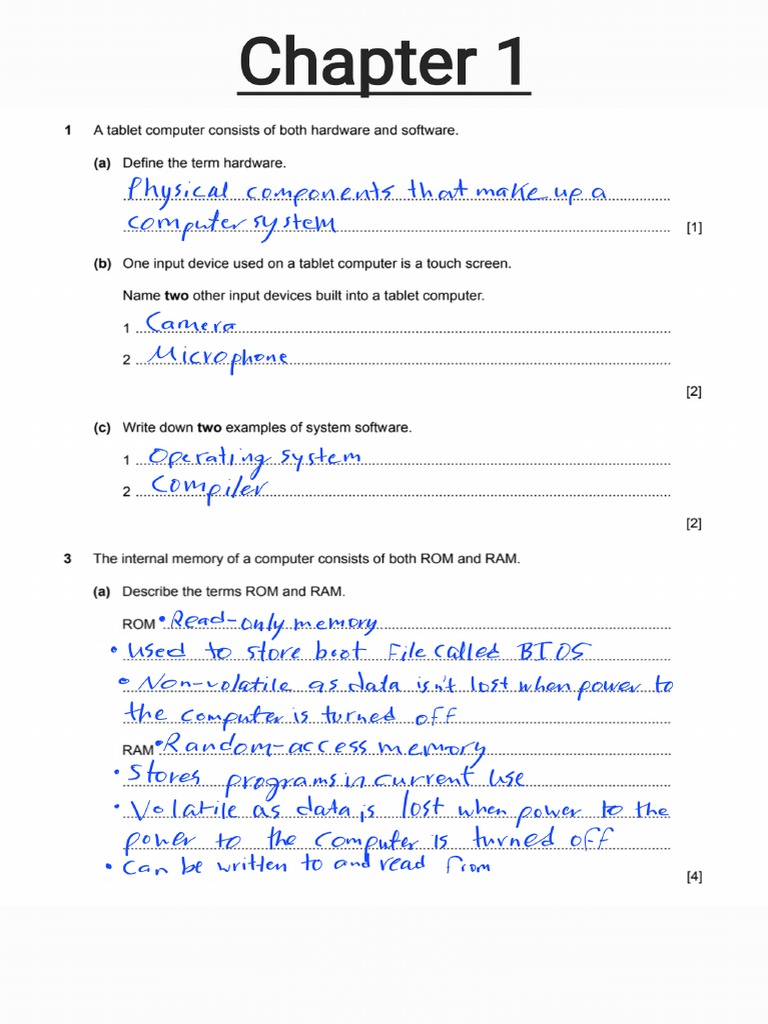 Chapter 1
1 A tablet computer consists of both hardware and software.
(a) Define the term hardware.
Physical components that make up a
computer system
[1]
(b) One input device used on a tablet computer is a touch screen.
Name two other input devices built into a tablet computer.
1 Camera
2 Microphone
[2]
(c) Write down two examples of system software.
1 Operating system
2 Compiler
[2]
3 The internal memory of a computer consists of both ROM and RAM.
(a) Describe the terms ROM and RAM.
ROM • Read-only memory
• Used to store boot file called BIOS
• Non-volatile as data isn't lost when power to
the computer is turned off
RAM • Random-access memory
• Stores programs in current use
• Volatile as data is lost when power to the
power to the computer is turned off
• Can be written to and read from
[4]